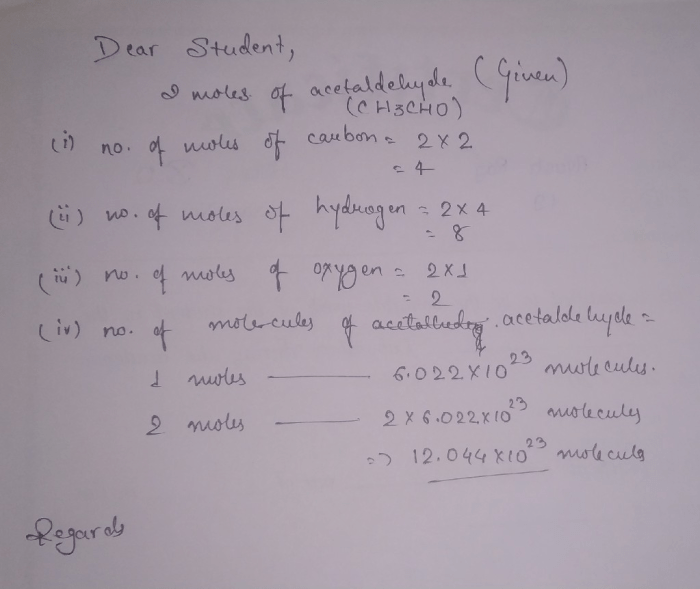 Dear Student,
2 moles of acetaldehyde (Given)
(CH3CHO)
(i) no. of moles of carbon = 2 × 2
= 4
(ii) no. of moles of hydrogen = 2 × 4
= 8
(iii) no. of moles of oxygen = 2×1
= 2
(iv) no. of molecules of acetaldehyde =
1 moles —— 6.022×10²³ molecules.
2 moles —— 2 × 6.022×10²³ molecules
=> 12.044×10²³ molecules
Regards